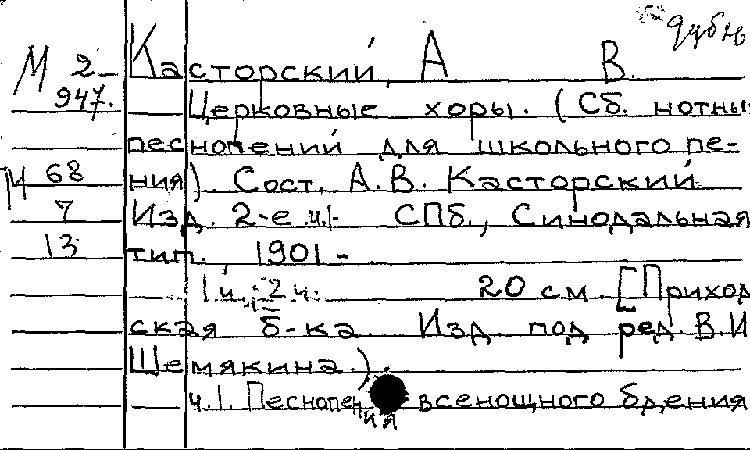 дубл
М 2-
947.
М 68
7
13
Касторский, А В.
Церковные хоры. (Сб. нотны
песнопений для школьного пе-
ния). Сост. А.В. Касторский
Изд. 2-е ч.1- СПб., Синодальная
тип., 1901-
20 см. [Приход
ская б-ка. Изд под ред. В.И
Шемякина.).
ч.1. Песнопения всенощного бдения